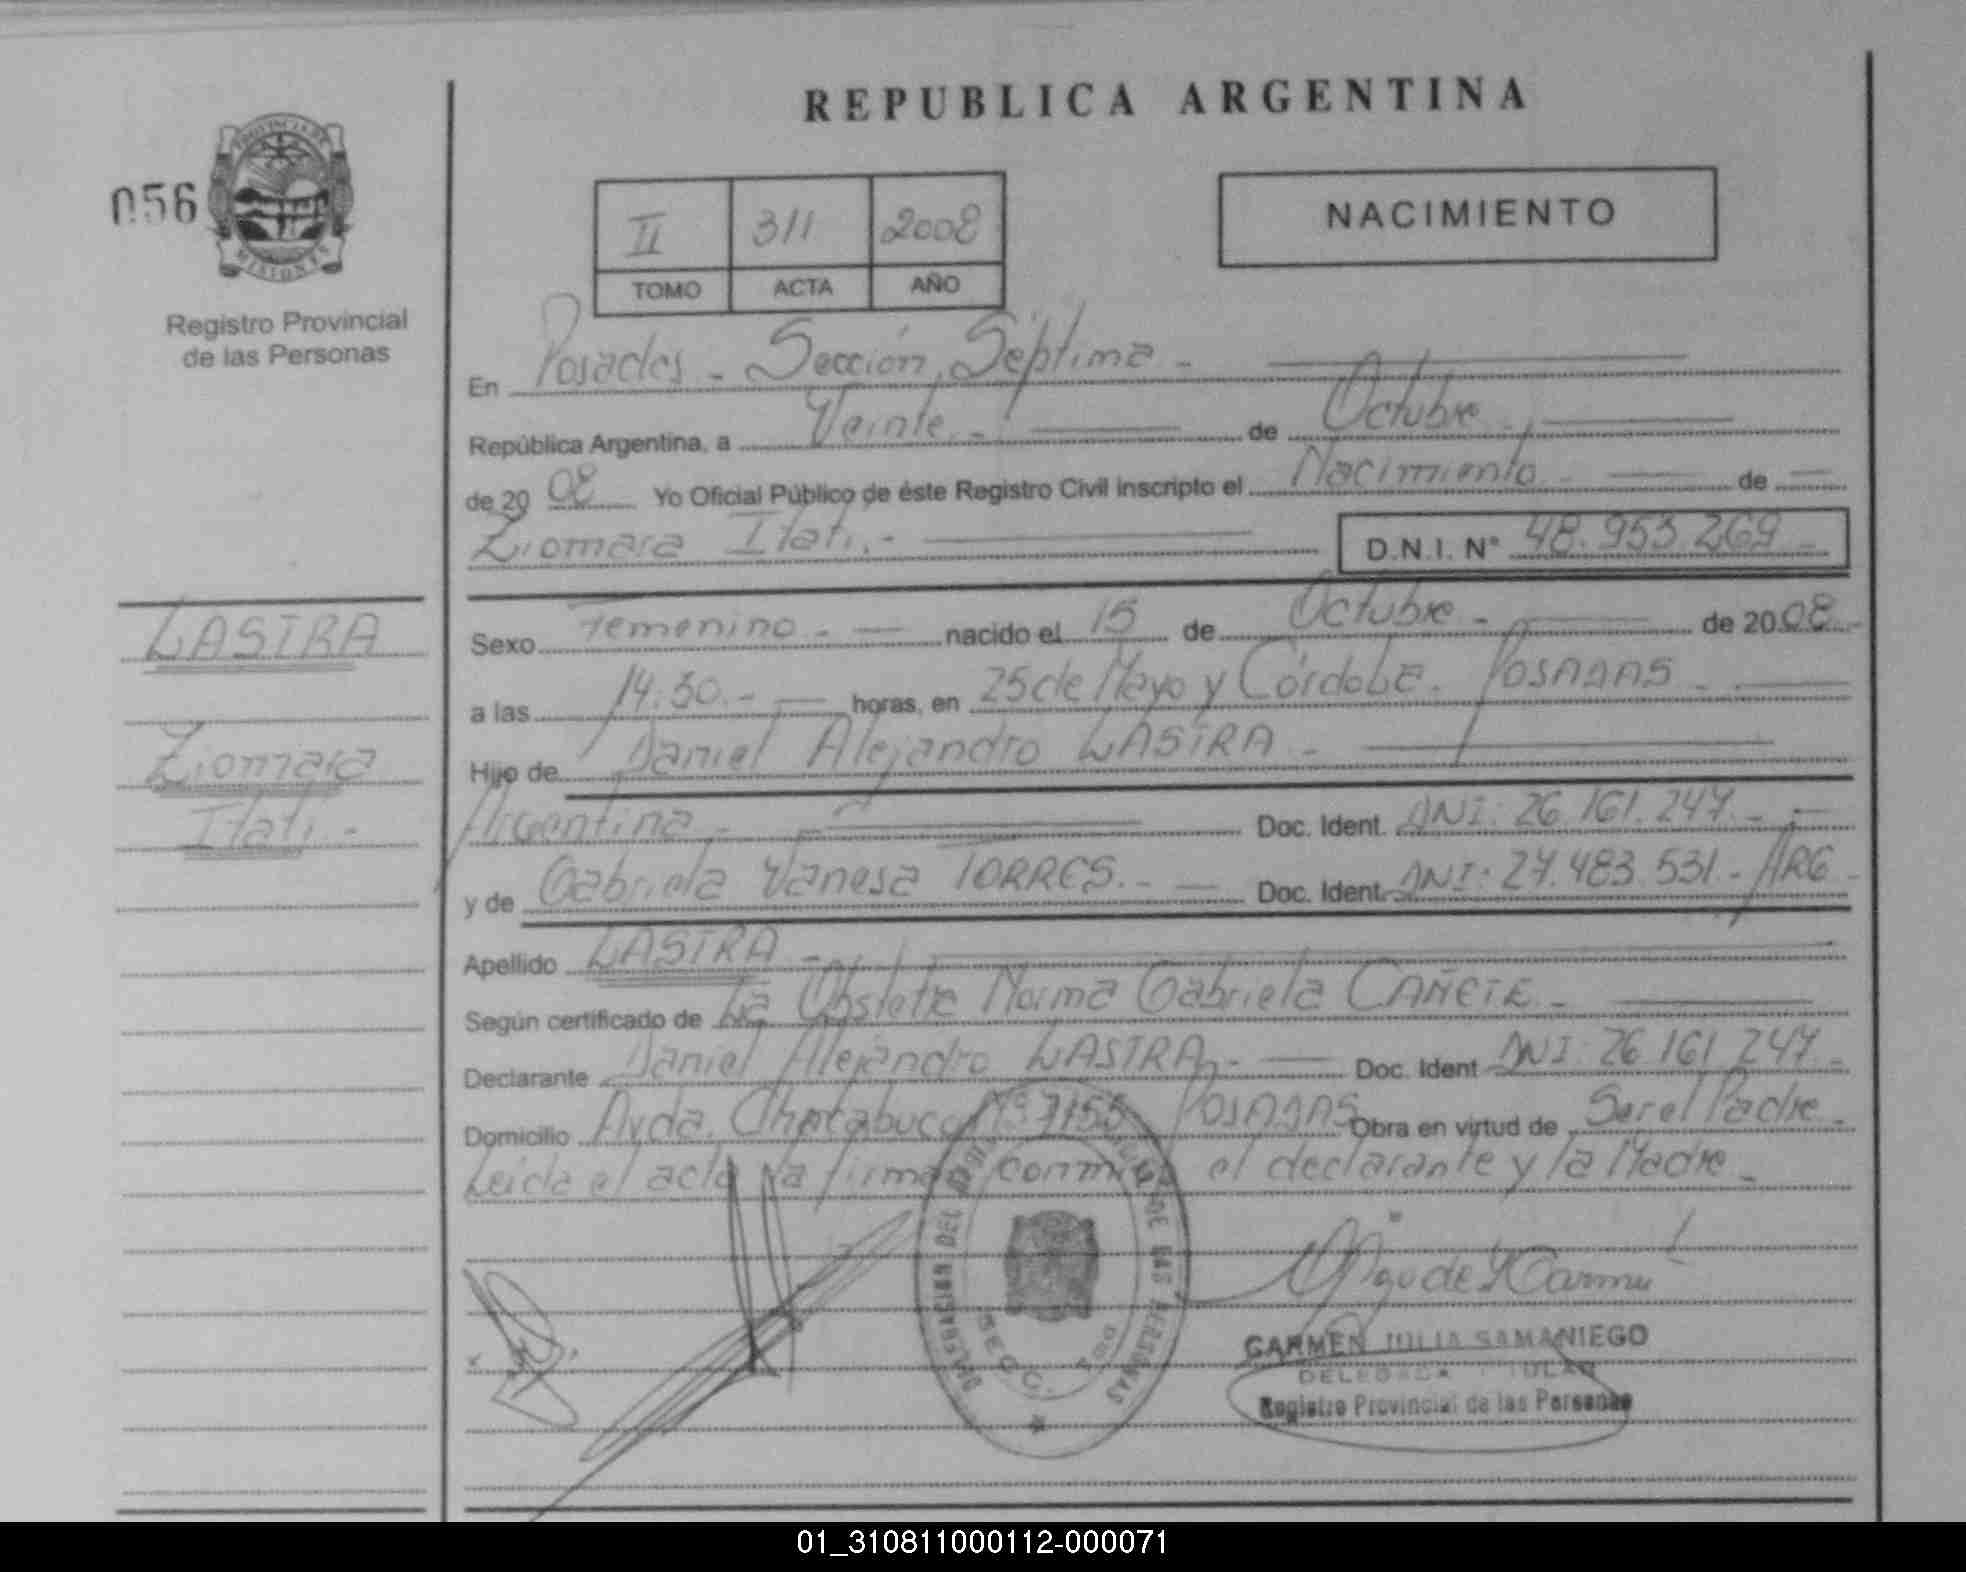 REPUBLICA ARGENTINA
056
PROVINCIA DE
MISIONES
Registro Provincial
de las Personas
II 311 2008
TOMO ACTA AÑO
NACIMIENTO
En Posadas - Sección Séptima -
República Argentina, a Veinte - de Octubre -
de 20 08 Yo Oficial Público de éste Registro Civil inscripto el Nacimiento - de
Ziomara Itatí.-
D.N.I. N° 48.953.269 -
LASTRA
Ziomara
Itatí.-
Sexo Femenino - nacido el 15 de Octubre - de 2008.-
a las 14:30.- horas, en 25 de Mayo y Córdoba. POSADAS -
Hijo de Daniel Alejandro LASTRA -
Argentina - Doc. Ident. DNI: 26.161.247.-
y de Gabriela Vanesa TORRES.- Doc. Ident. DNI: 27.483.531.- ARG -
Apellido LASTRA -
Según certificado de La Obstetra Norma Gabriela CAÑETE -
Declarante Daniel Alejandro LASTRA.- Doc. Ident DNI: 26.161.247.-
Domicilio Avda. Chacabuco N° 7155 POSADAS Obra en virtud de Ser el Padre -
Leída el acta la firman conmigo el declarante y la Madre -
DELEGACION DEL DE LAS PERSONAS
SECC.
CARMEN JULIA SAMANIEGO
DELEGADA TITULAR
Registro Provincial de las Personas
01_310811000112-000071